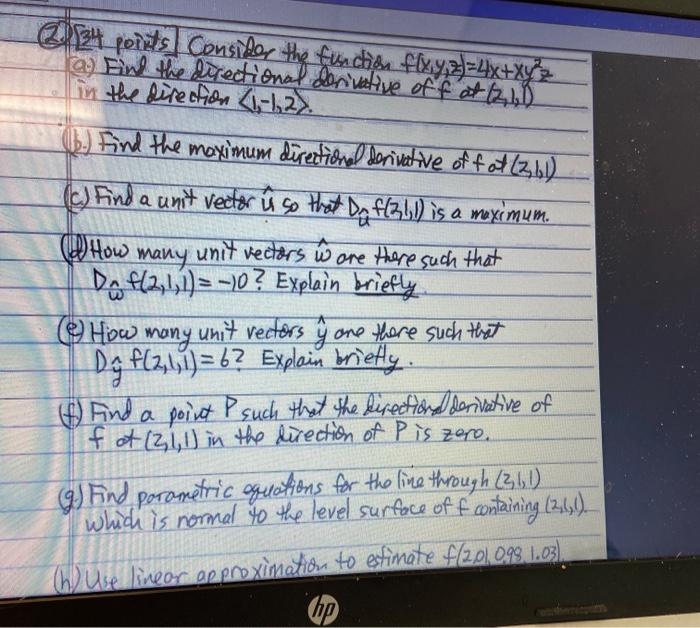 ② [34 points] Consider the function f(x,y,z)=4x+xy²z
(a) Find the directional derivative of f at (2,1,1)
in the direction <1,-1,2>.
(b.) Find the maximum directional derivative of f at (2,1,1)
(c) Find a unit vector û so that Dûf(2,1,1) is a maximum.
(d) How many unit vectors ŵ are there such that
Dŵf(2,1,1)=-10? Explain briefly
(e) How many unit vectors ŷ are there such that
Dŷf(2,1,1)=6? Explain briefly.
(f) Find a point P such that the directional derivative of
f at (2,1,1) in the direction of P is zero.
(g) Find parametric equations for the line through (2,1,1)
which is normal to the level surface of f containing (2,1,1).
(h) Use linear approximation to estimate f(2.01, 0.98, 1.03).
hp